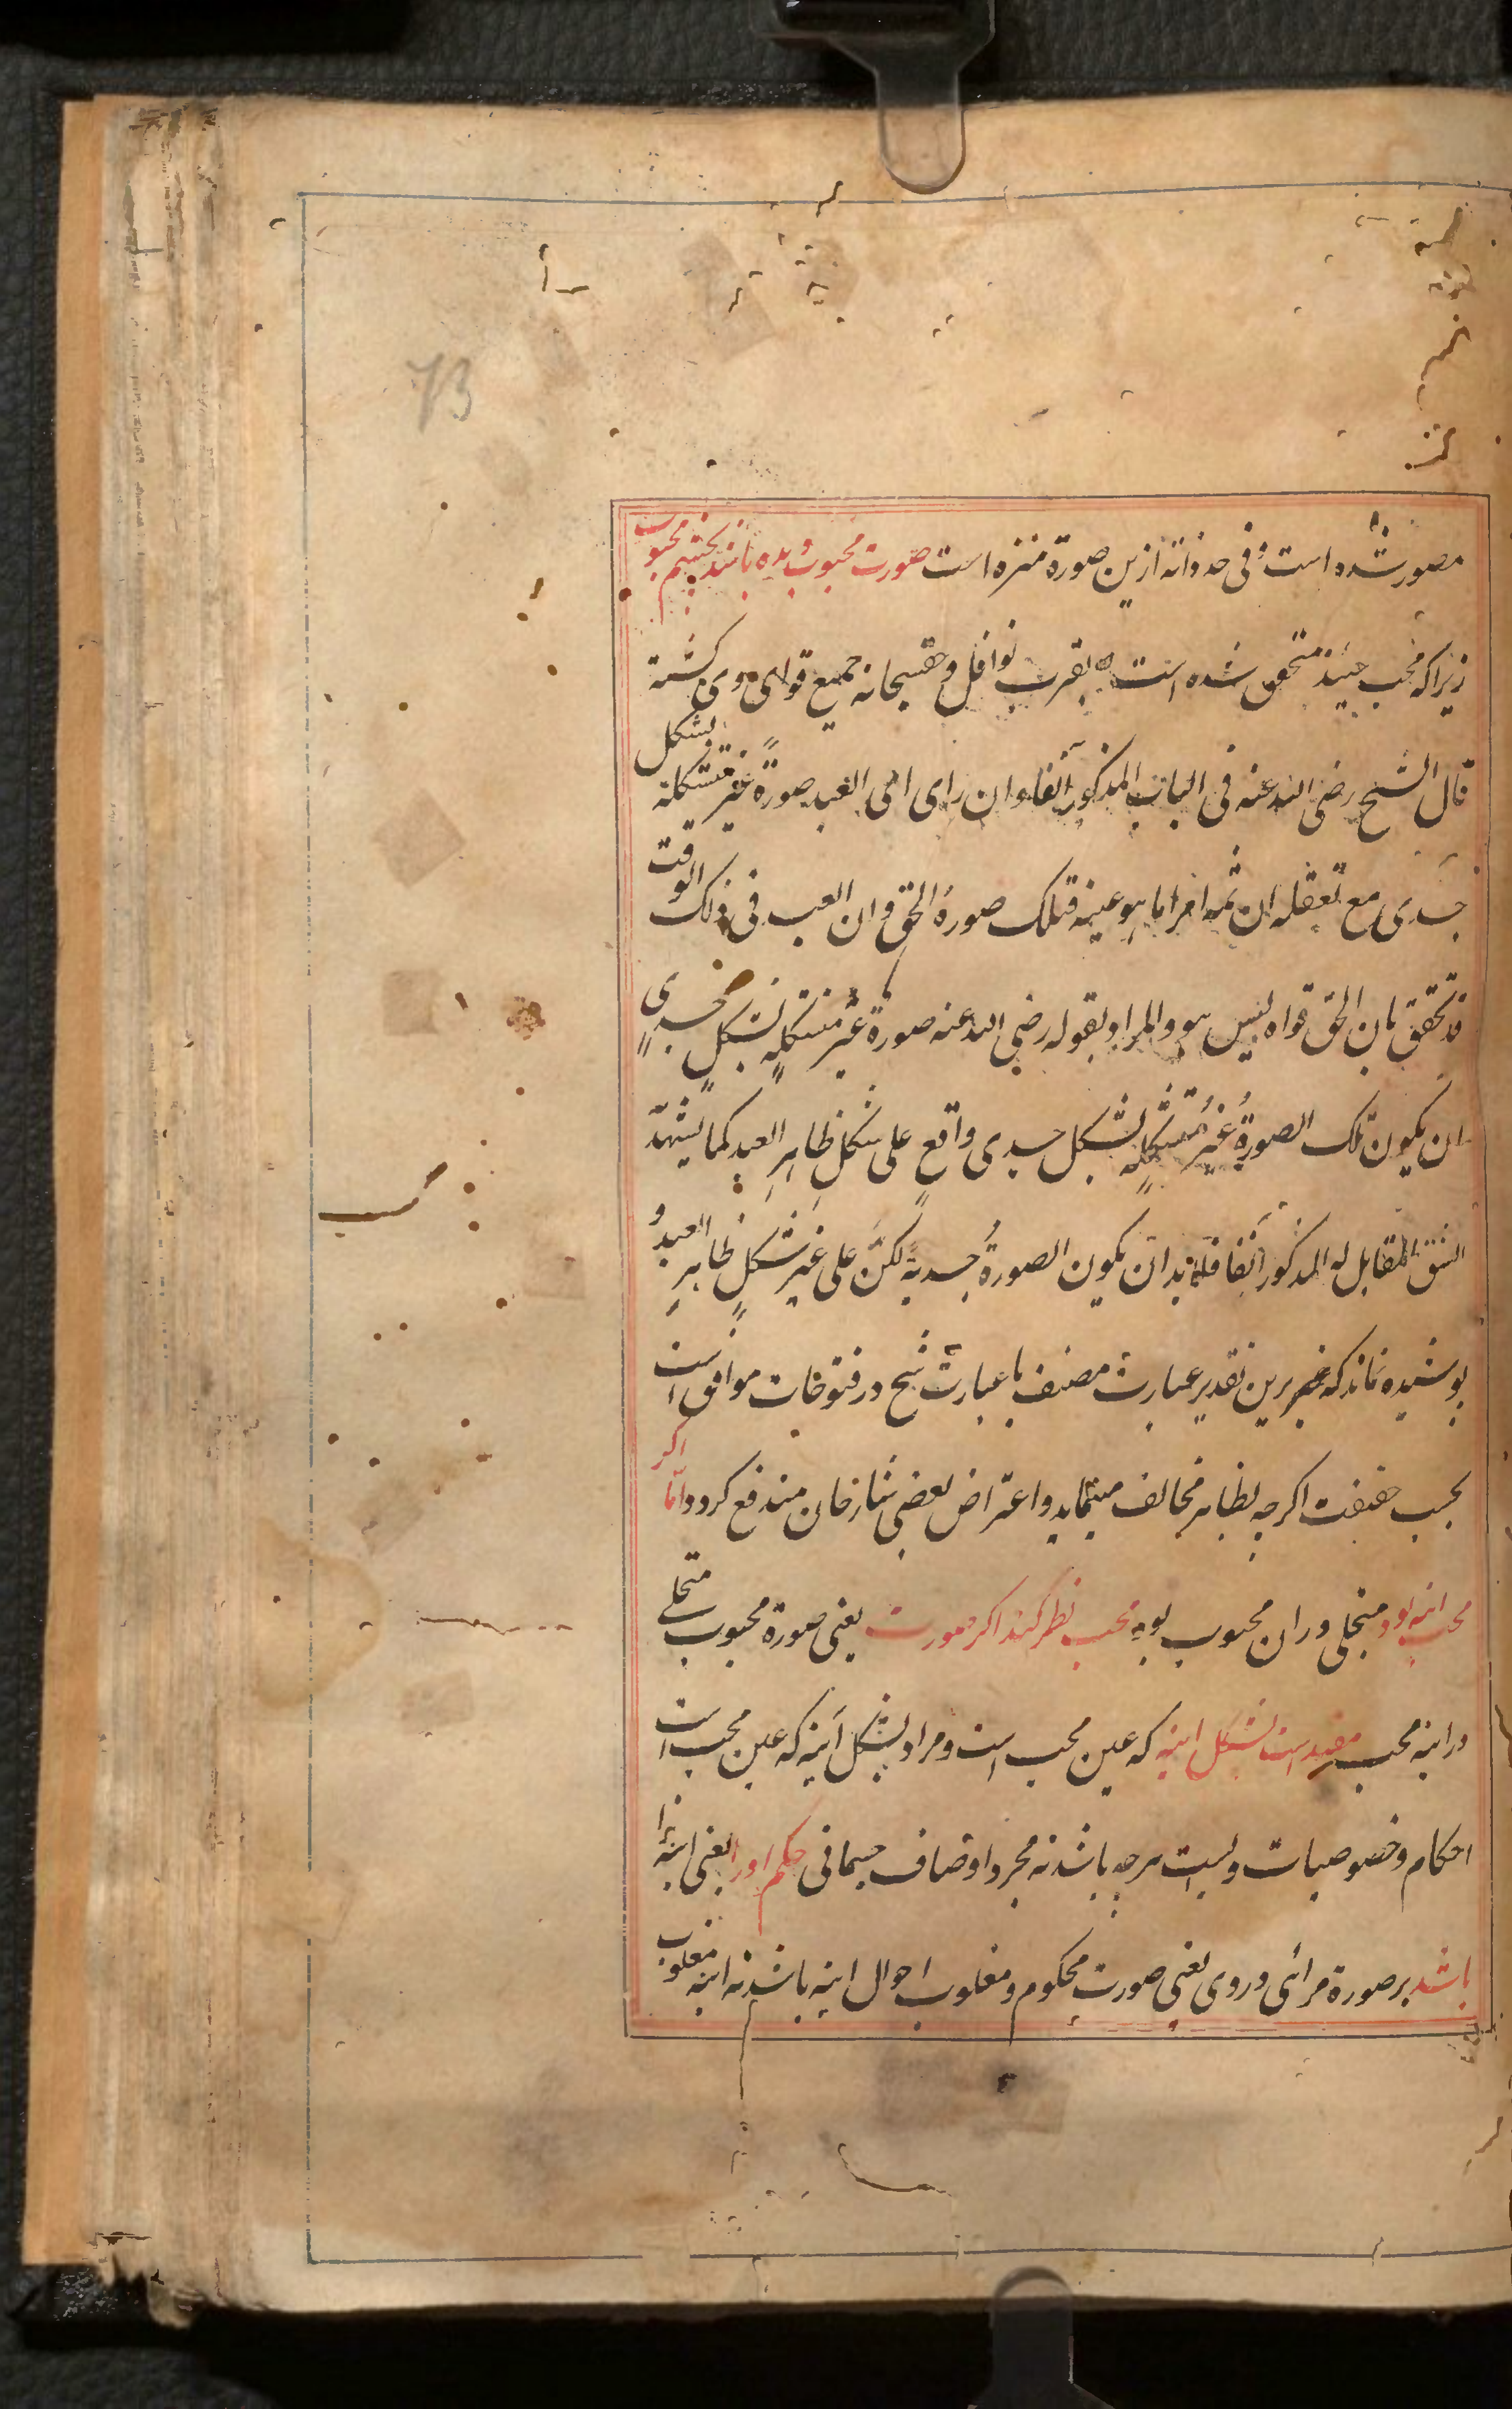 73
مصور شده است و فی حد ذاته ازین صورة منزه است صورت محبوب دیده باشد بچشم محبوب
زیرا که محب حینئذ متحقق شده است بقرب نوافل و حق سبحانه جمیع قوای وی کشته
قال الشیخ رضی الله عنه فی الباب المذکور آنفا وان رای ای العبد صورةً غیر متشکلة بشکل
جسدی مع تعقله ان ثمه امرا ما هو عینه فتلک صورة الحق و ان العبد فی ذلک الوقت
قد تحقق بان الحق قواه لیس هو والمراد بقوله رضی الله عنه صورة غیر متشکلةٍ بشکلٍ جسدیٍ
ان یکون تلک الصورةُ غیرُ متشکلةٍ بشکل جسدی واقعٍ علی شکل ظاهرِ العبد کما یشهد
الشق المقابل له المذکور آنفا فلابد ان یکون الصورةُ جسدیةً لکن علی غیر شکلٍ ظاهرِ العبد و
پوشیده نماند که برین تقدیر عبارت مصنف با عبارت شیخ در فتوحات موافق است
بحسب حقیقت اکرچه بظاهر مخالف مینماید و اعتراض بعضی شارحان مندفع کردد و امّا اکر
محب اینه بود و متجلی دران محبوب بود محب نظر کند اکر صورت یعنی صورة محبوب متجلی
در اینه محب مقید است بشکل اینه که عین محب است و مراد بشکل آینه که عین محب است
احکام و خصوصیات ویست هرچه باشد نه مجرد اوصاف جسمانی حکم اورا یعنی اینه را
باشد بر صورة مرائی در وی یعنی صورت محکوم و مغلوب احوال اینه باشد نه اینه مغلوب